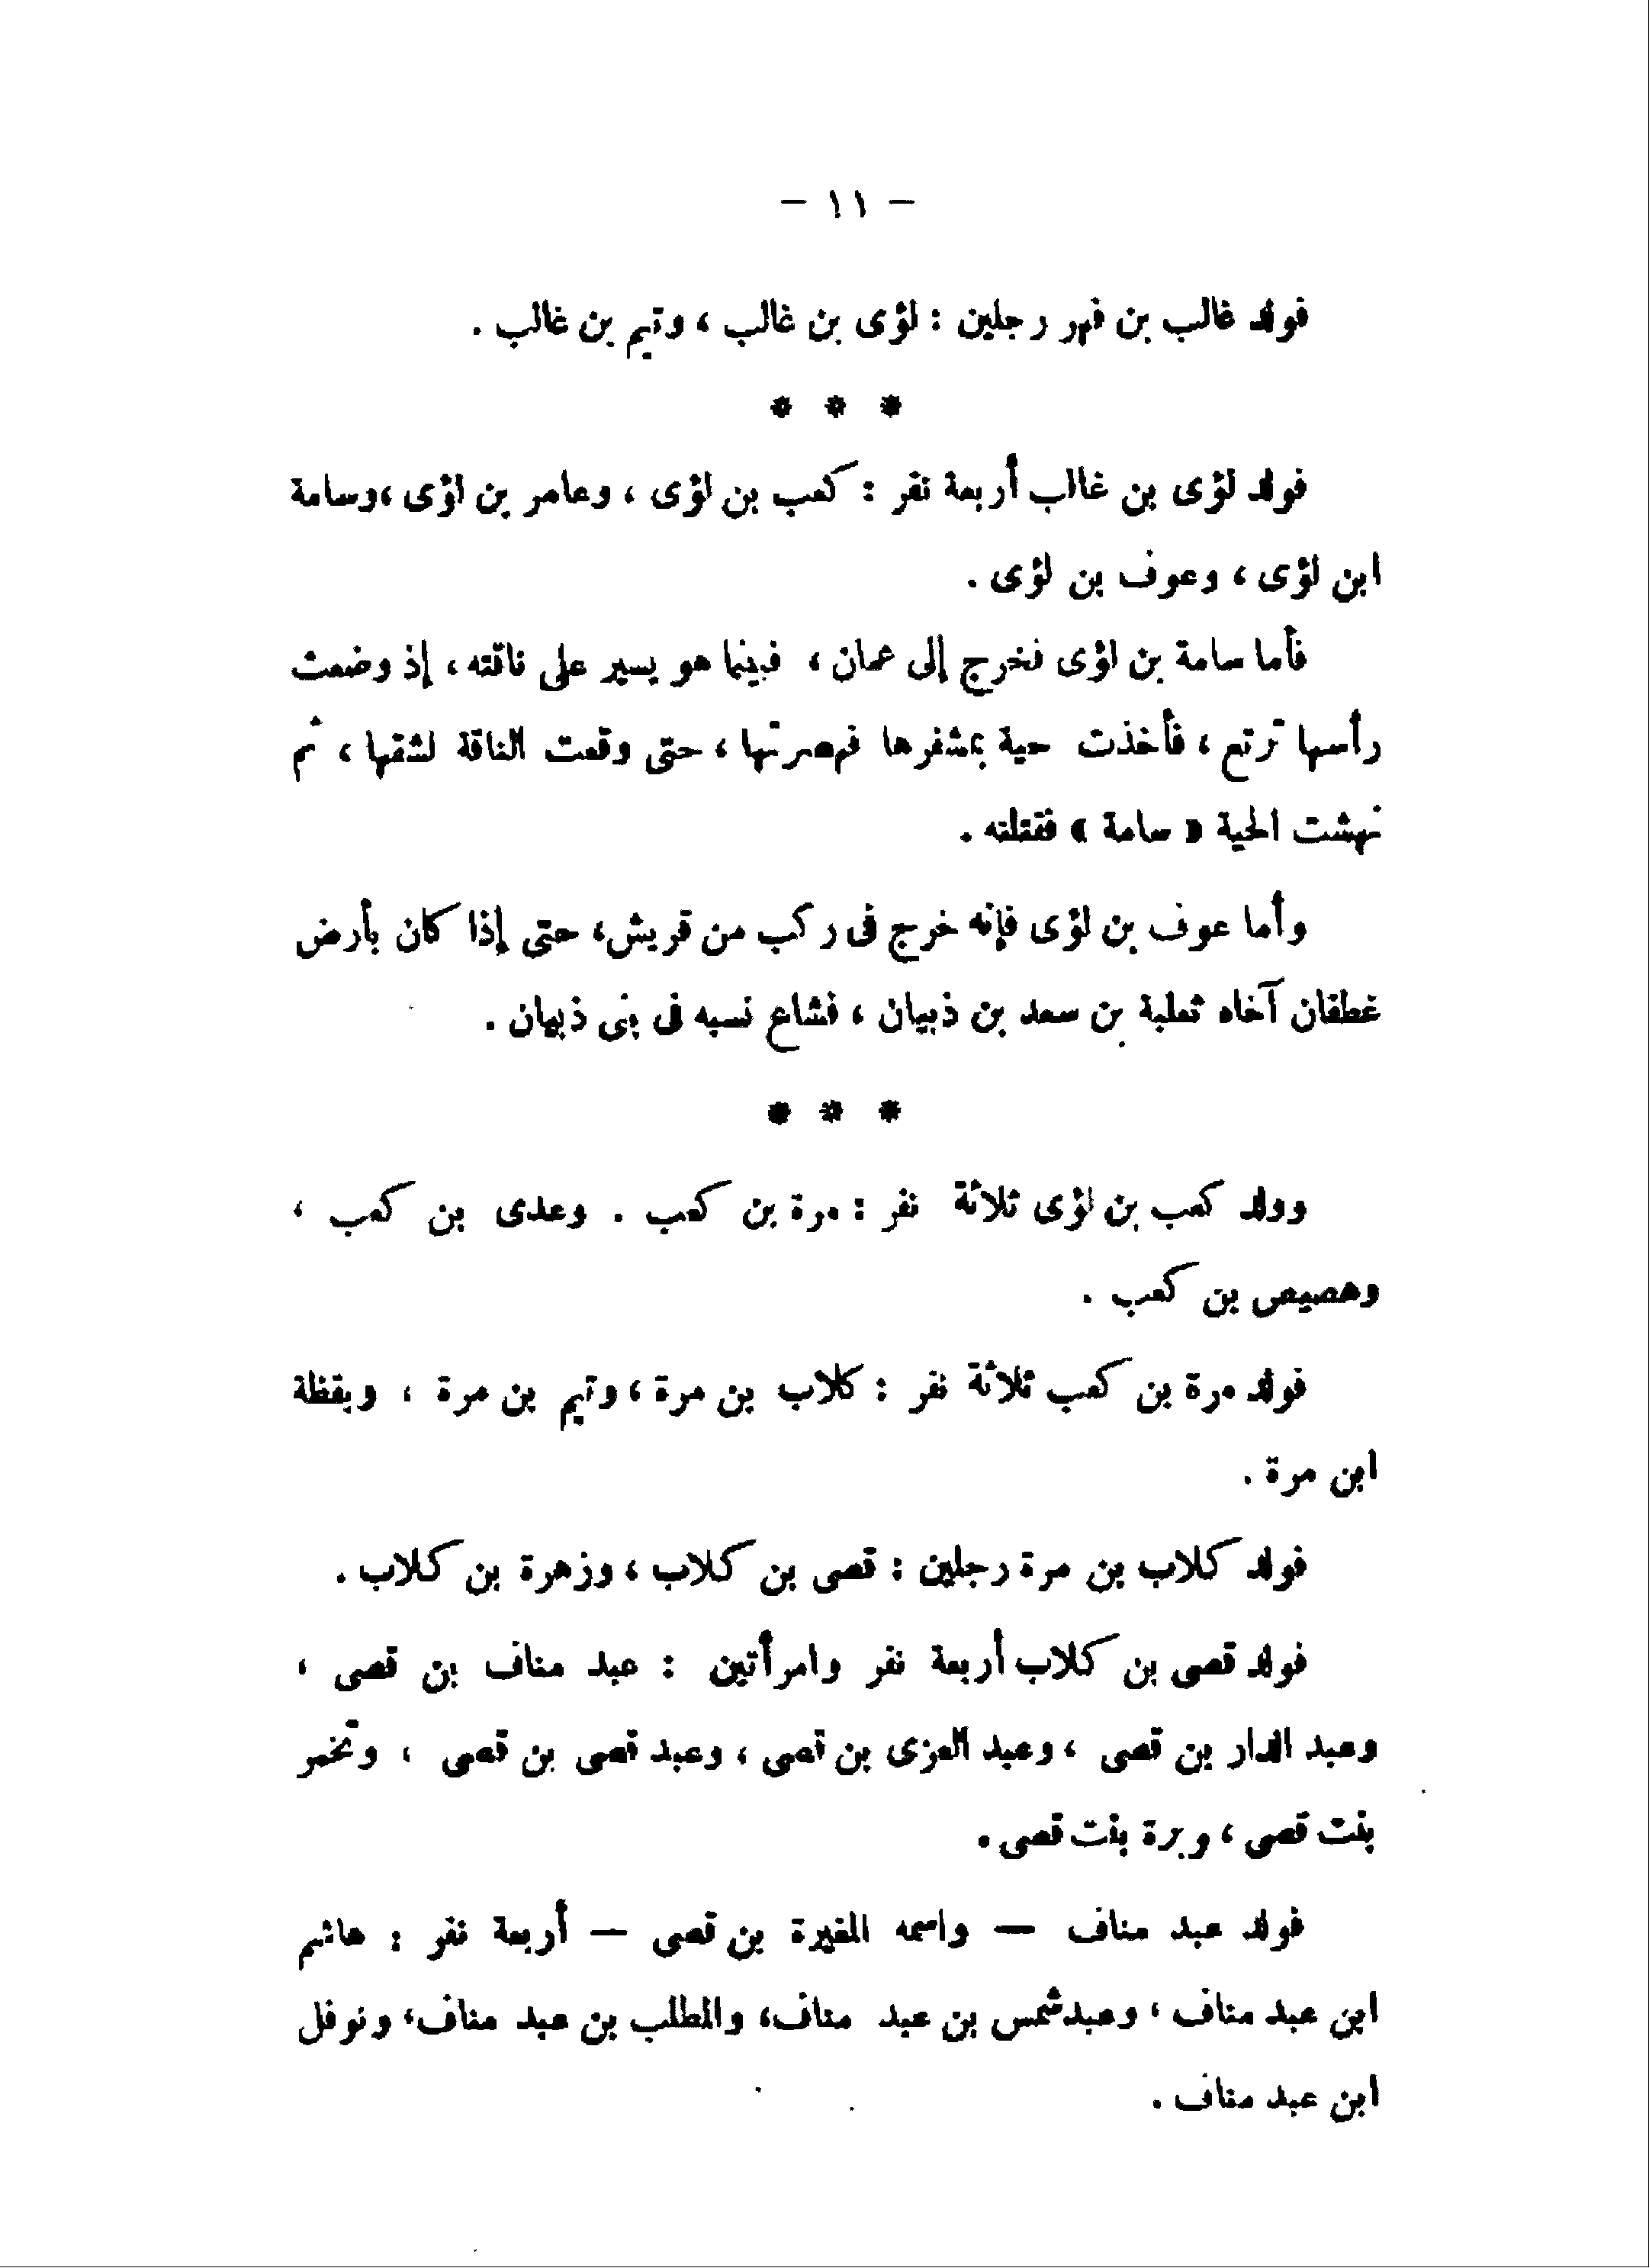 — ١١ —
فولد غالب بن فهر رجلين : لؤى بن غالب ، وتيم بن غالب .
* * *
فولد لؤى بن غالب أربعة نفر : كعب بن لؤى ، وعامر بن لؤى ،وسامة
ابن لؤى ، وعوف بن لؤى .
فأما سامة بن لؤى فخرج إلى عمان ، فبينما هو يسير على ناقته ، إذ وضعت
رأسها ترتع ، فأخذت حية بمشفرها فهصرتها ، حتى وقعت الناقة لشقها ، ثم
نهشت الحية « سامة » فقتلته .
وأما عوف بن لؤى فإنه خرج فى ركب من قريش، حتى إذا كان بأرض
غطفان آخاه ثعلبة بن سعد بن ذبيان ، فشاع نسبه فى بنى ذبيان .
* * *
وولد كعب بن لؤى ثلاثة نفر : مرة بن كعب . وعدى بن كعب ،
وهصيص بن كعب .
فولد مرة بن كعب ثلاثة نفر : كلاب بن مرة ، وتيم بن مرة ، ويقظة
ابن مرة .
فولد كلاب بن مرة رجلين : قصى بن كلاب ، وزهرة بن كلاب .
فولد قصى بن كلاب أربعة نفر وامرأتين : عبد مناف بن قصى ،
وعبد الدار بن قصى ، وعبد العزى بن قصى ، وعبد قصى بن قصى ، وتخمر
بنت قصى ، وبرة بنت قصى .
فولد عبد مناف — واسمه المغيرة بن قصى — أربعة نفر : هاشم
ابن عبد مناف ، وعبدشمس بن عبد مناف، والمطلب بن عبد مناف، ونوفل
ابن عبد مناف .